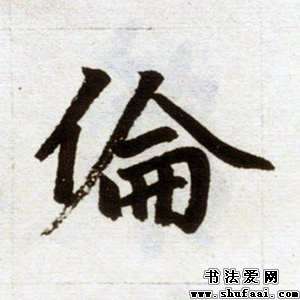 倫
书法爱网
www.shufaai.com